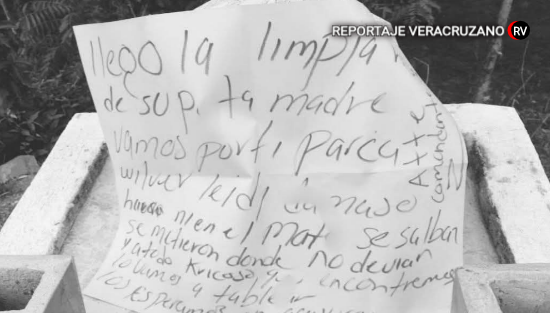 REPORTAJE VERACRUZANO RV
llego la limpia
de su p. ta madre
vamos por ti parca
wilver leidi
ni en el mar se salban
se mitieron donde no devian
y a todo encontremos
lo vamos a table
los esperamos
Atte
comandant